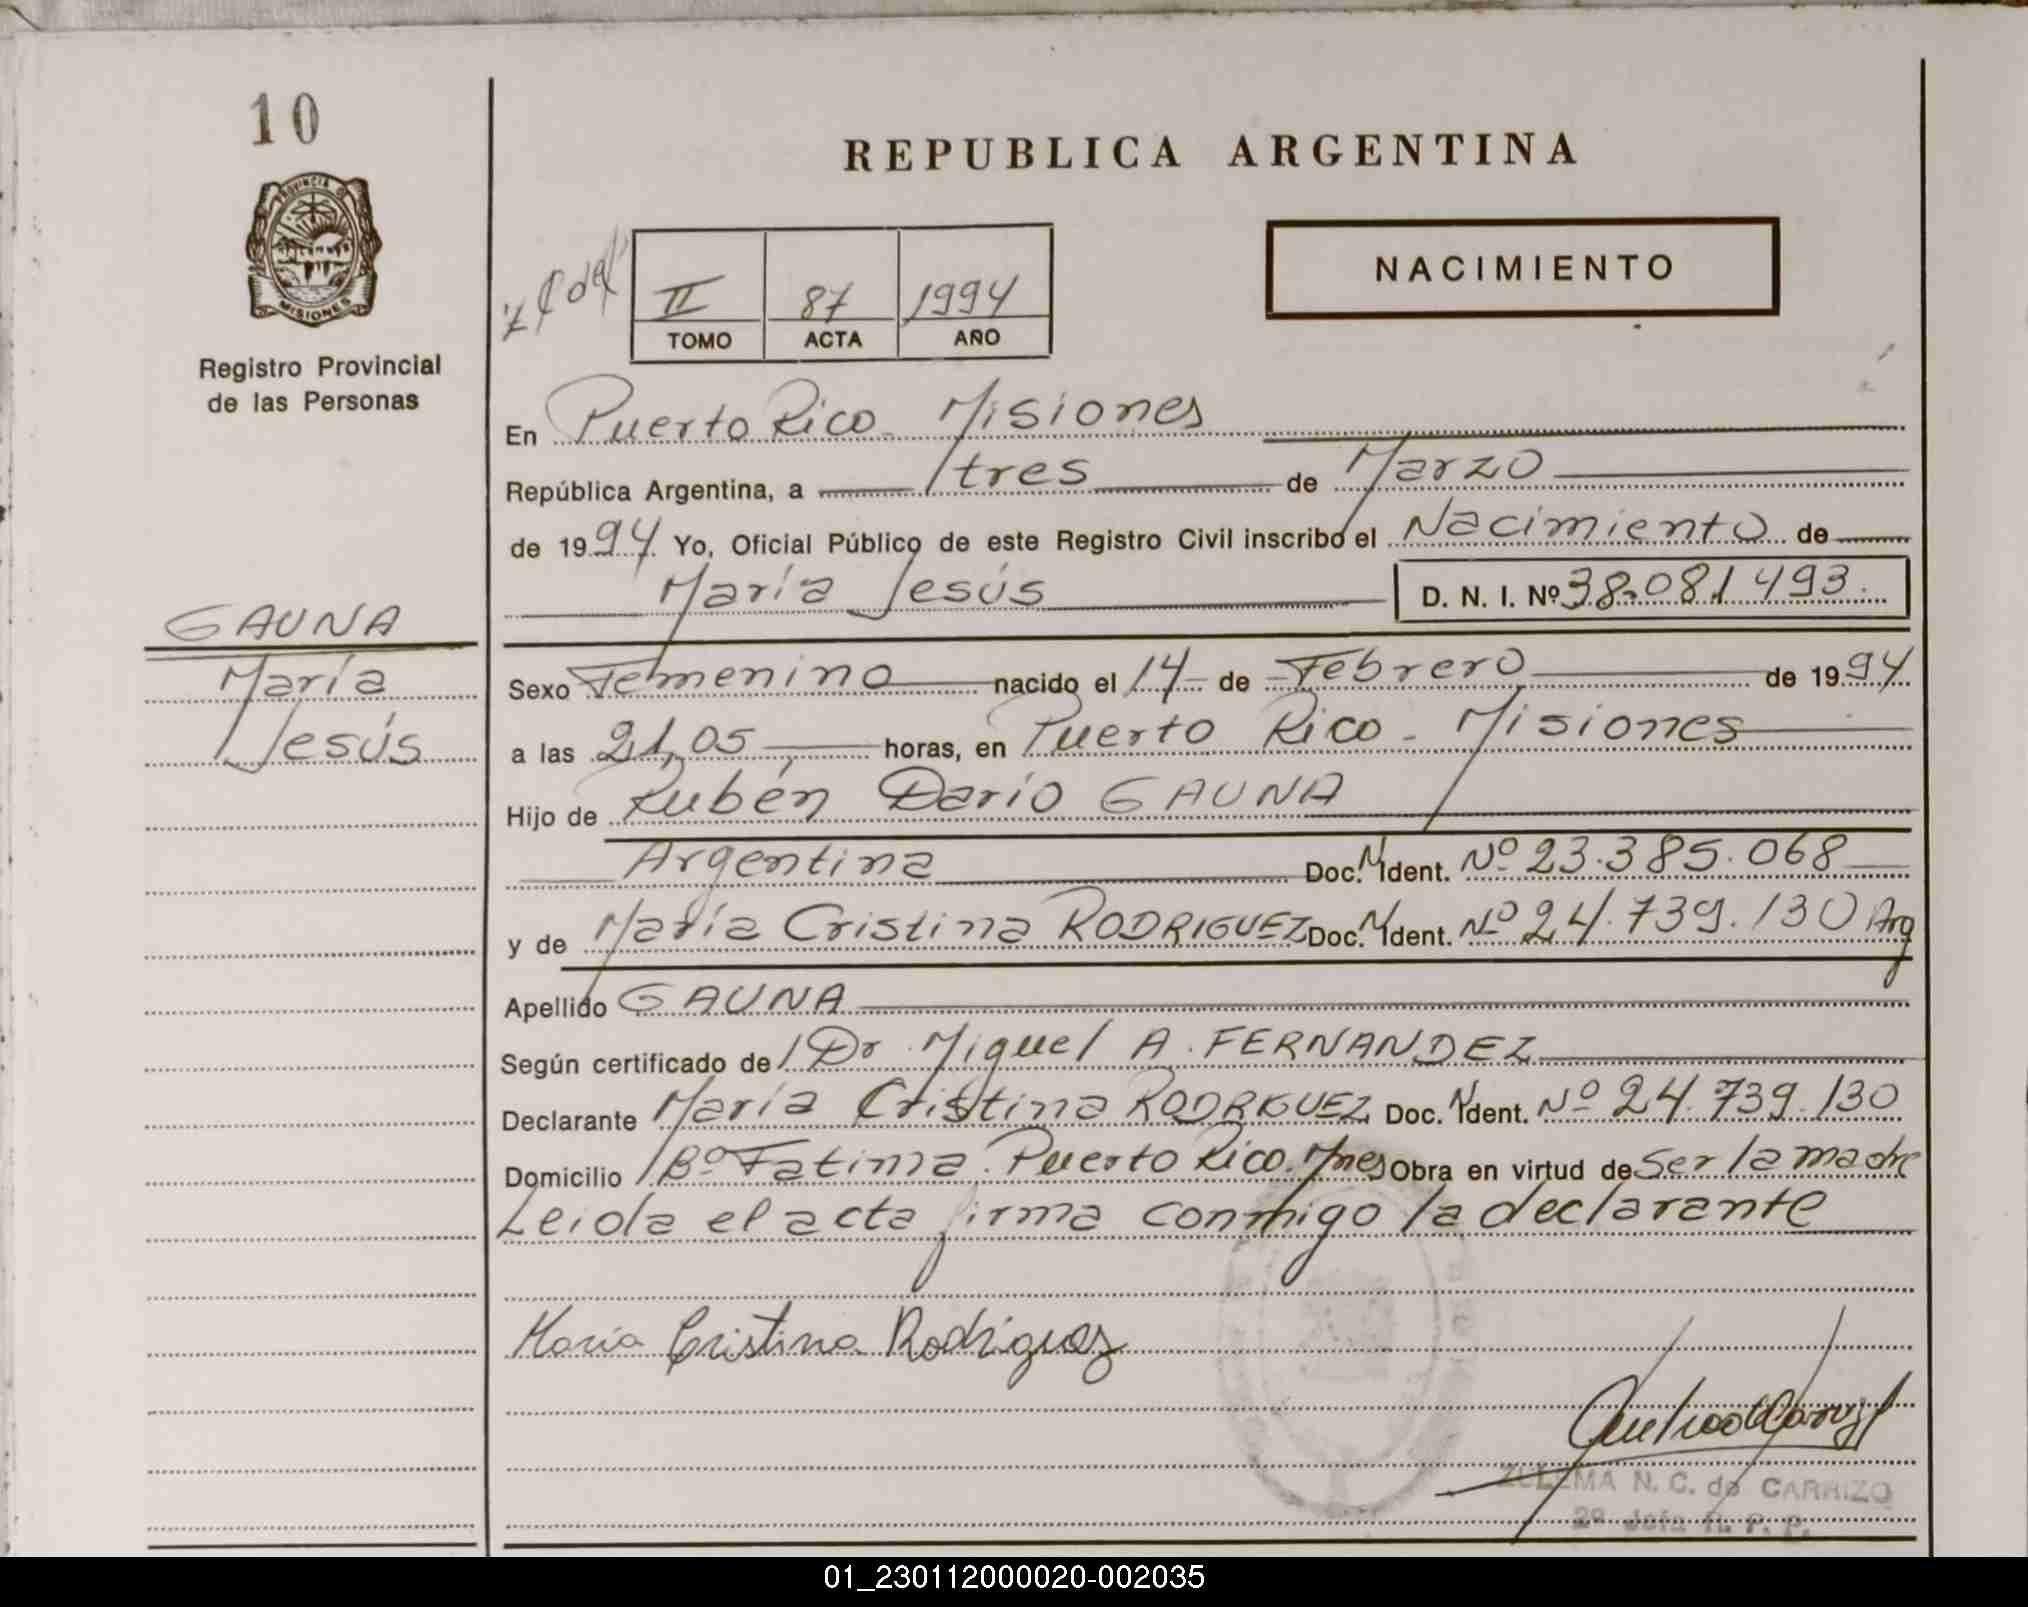 10
PROVINCIA D
MISIONES
Registro Provincial
de las Personas
GAUNA
María
Jesús
REPUBLICA ARGENTINA
II 87 1994
TOMO ACTA AÑO
NACIMIENTO
En Puerto Rico - Misiones
República Argentina, a tres de Marzo
de 1994 Yo, Oficial Público de este Registro Civil inscribo el Nacimiento de
María Jesús D. N. I. Nº 38.081.493.
Sexo Femenino nacido el 14 de Febrero de 1994
a las 21,05 horas, en Puerto Rico - Misiones
Hijo de Rubén Darío GAUNA
Argentina Doc. N Ident. Nº 23.385.068
y de María Cristina RODRIGUEZ Doc. N Ident. Nº 24.739.130 Arg
Apellido GAUNA
Según certificado de Dr Miguel A. FERNANDEZ
Declarante María Cristina RODRIGUEZ Doc. N Ident. Nº 24.739.130
Domicilio Bº Fatima. Puerto Rico. Mnes Obra en virtud de ser la madre
Leida el acta firma conmigo la declarante
Maria Cristina Rodriguez
ZULEMA N. C. de CARRIZO
2º Jefa R. P. P.
01_230112000020-002035